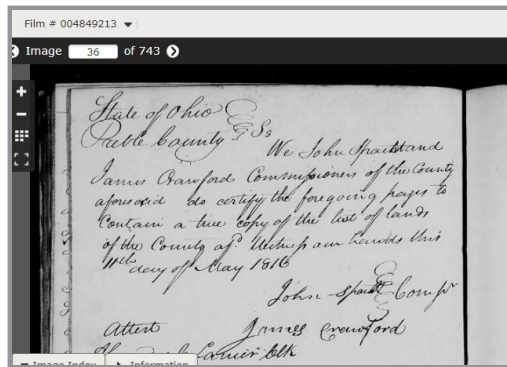 Film # 004849213
Image 36 of 743
State of Ohio
Preble County Ss
We John Spacht and
James Crawford Commissioners of the County
aforesaid do certify the foregoing pages to
Contain a true copy of the list of lands
of the County afs. Witness our hands this
11th day of May 1816
John Spacht Comsrs
Attest James Crawford
Clk
Image Index Information